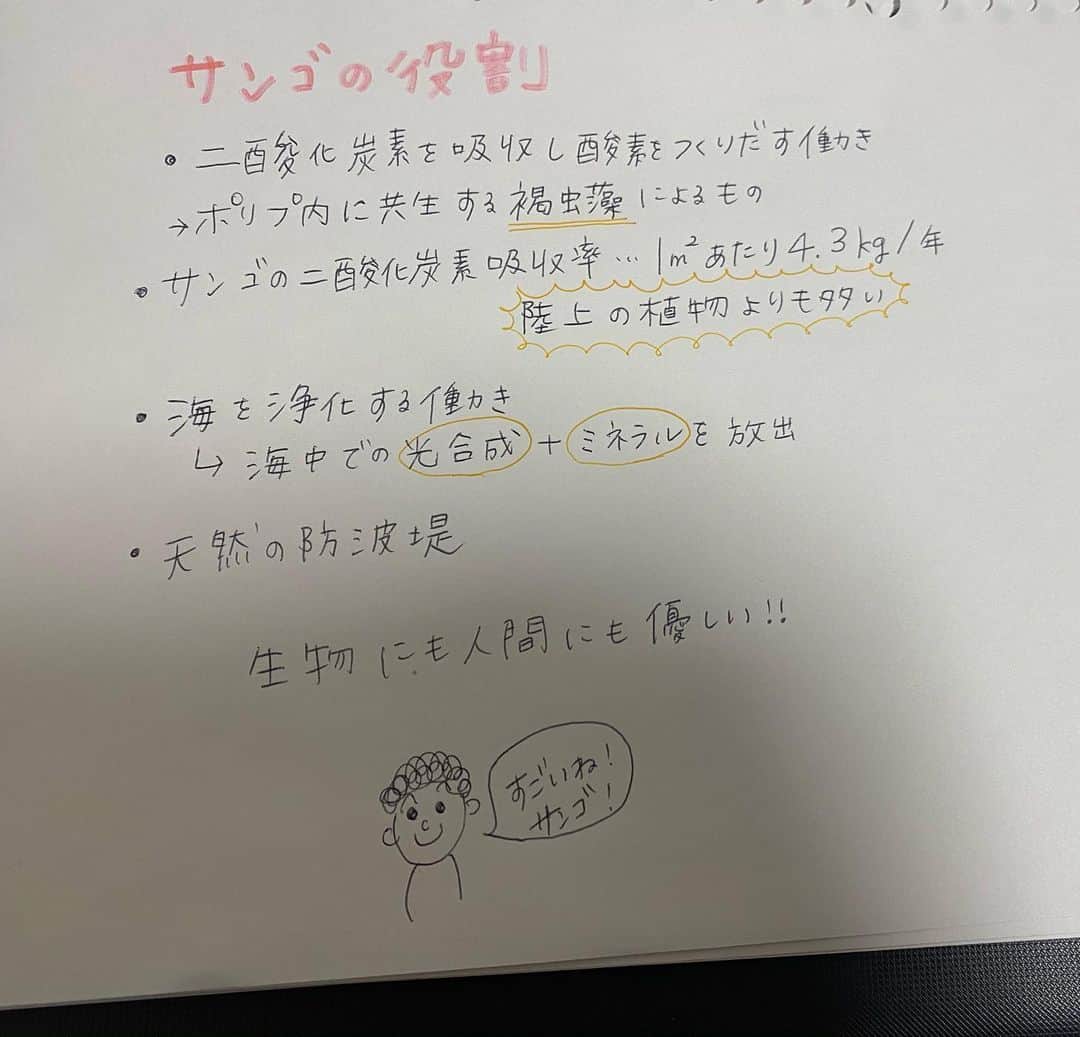 サンゴの役割
• 二酸化炭素を吸収し酸素をつくりだす働き
→ポリプ内に共生する褐虫藻によるもの
• サンゴの二酸化炭素吸収率…1m²あたり4.3kg/年
陸上の植物よりも多い
• 海を浄化する働き
↳ 海中での光合成+ミネラルを放出
• 天然の防波堤
生物にも人間にも優しい!!
すごいね!
サンゴ!